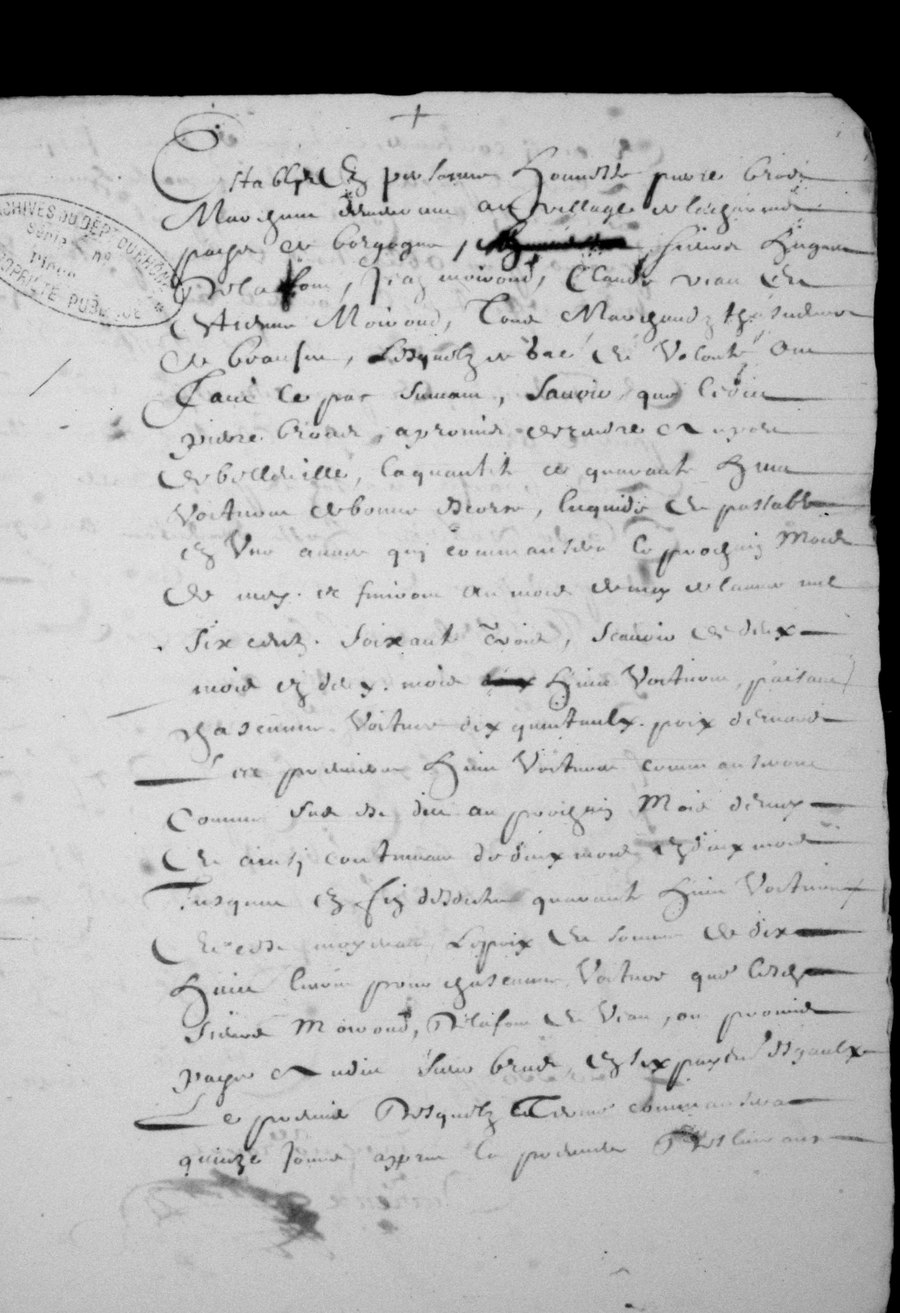 +
Establye En personne Honneste pierre brode
Marchant demeurant au village de lescharmes
pays de borgogne, sieurs Hugues
Delafont, Jean moirond, Claude viau Et
Estienne Moirond, Tous Marchandz
de beaujeu, Lesquelz de bas Et Volonté Ont
Faict Ce pac Suivant, Scavoir, que le sieur
pierre brode, a promis de rendre
de belleville, la quantité de quarante huict
Voitures de bonne, liquide Et passable
En Une année quy commancera le prochain Mois
De may. et finiront au mois de may de lannée mil
Six centz. Soixante trois, Scavoir de deux
mois En deux. mois huict Voitures, paisant
chascunne Voiture dix quintaulx. poix de marc
Les premieres huict Voitures commanseront
Comme sus Est dict au prochain Mois de may
Et ainsy continuer de deux mois En deux mois
Jusques En fin desdictes quarante huict Voitures
Et ce moyenant Le prix Et somme de dix
huict livres pour chascunne Voiture que lesdictz
Sieurs Moirond, Delafont Et Viau, ont promis
payer audict Sieur brode, En six payementz Esgaulx
Le premier Desquelz Termes commansera
quinze jours appres la premiere Deslivrance
ARCHIVES DU DEPT DU RHONE
PROPRIETE PUBLIQUE